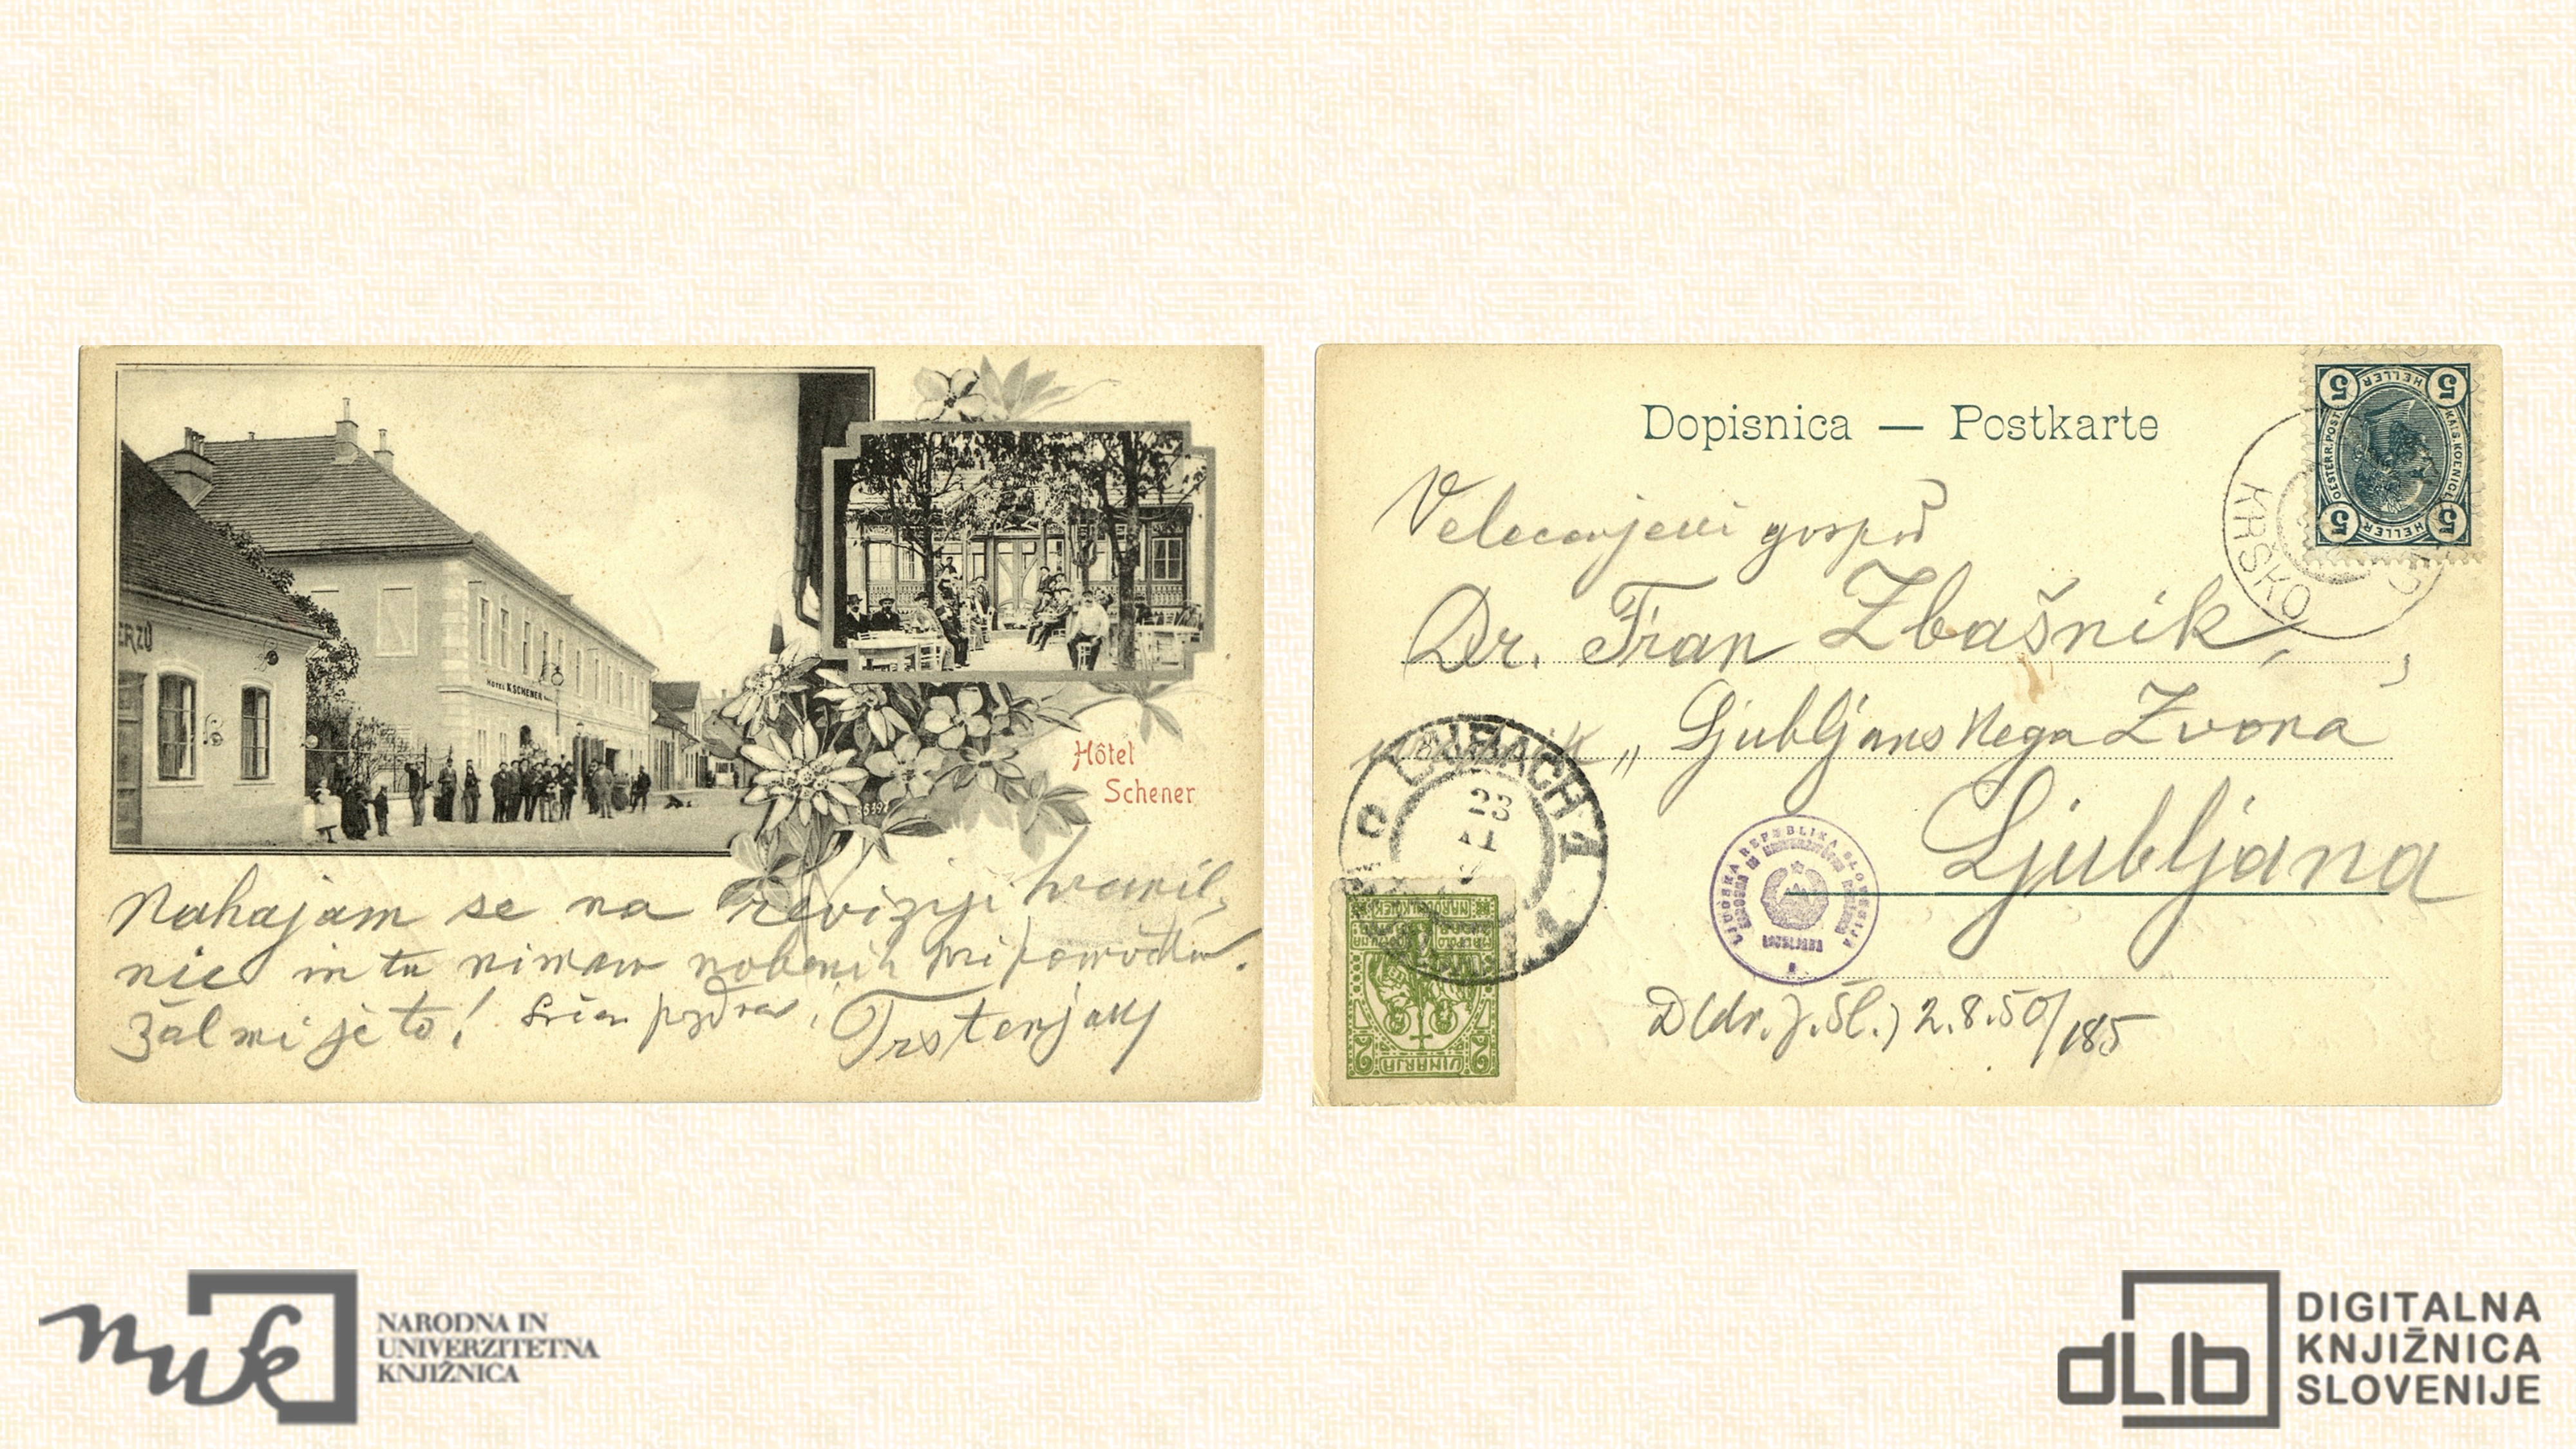 ERZÜ
HOTEL K. SCHENER
Hôtel
Schener
Nahajam se na reviziji hranil-
nice in tu nimam nobenih pripomočkov.
Žal mi je to! Srčen pozdrav! Trstenjak
Dopisnica — Postkarte
5 HELLER 5
OESTERR. POST.
KAIS. KOENIGL.
5 HELLER 5
KRŠKO
Velecenjeni gospod
Dr. Fran Zbašnik,
„Ljubljanskega Zvona
Ljubljana
LAIBACH 1
23
LJUDSKA REPUBLIKA SLOVENIJA
NARODNA IN UNIVERZITETNA KNJIŽNICA
LJUBLJANA
2 VINARJA 2
D(dr. J. Šl.) 2.8.50/185
nuk
NARODNA IN
UNIVERZITETNA
KNJIŽNICA
dLib
DIGITALNA
KNJIŽNICA
SLOVENIJE